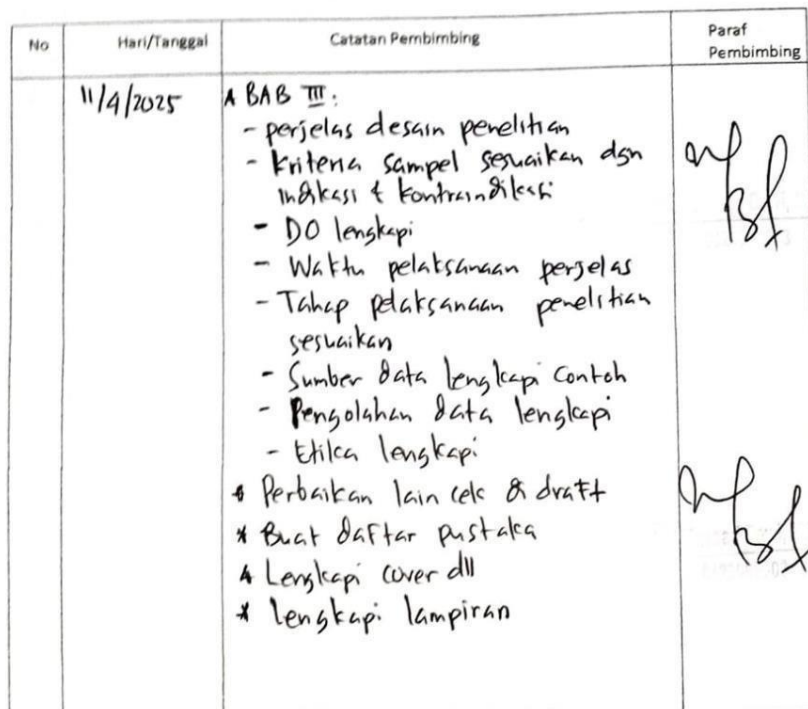 No Hari/Tanggal Catatan Pembimbing Paraf Pembimbing
11/4/2025 * BAB III:
- perjelas desain penelitian
- Kriteria sampel sesuaikan dgn
indikasi & kontraindikasi
- DO lengkapi
- Waktu pelaksanaan perjelas
- Tahap pelaksanaan penelitian
sesuaikan
- Sumber data lengkapi contoh
- Pengolahan data lengkapi
- Etika lengkapi
* Perbaikan lain cek di draft
* Buat daftar pustaka
* Lengkapi cover dll
* lengkapi lampiran